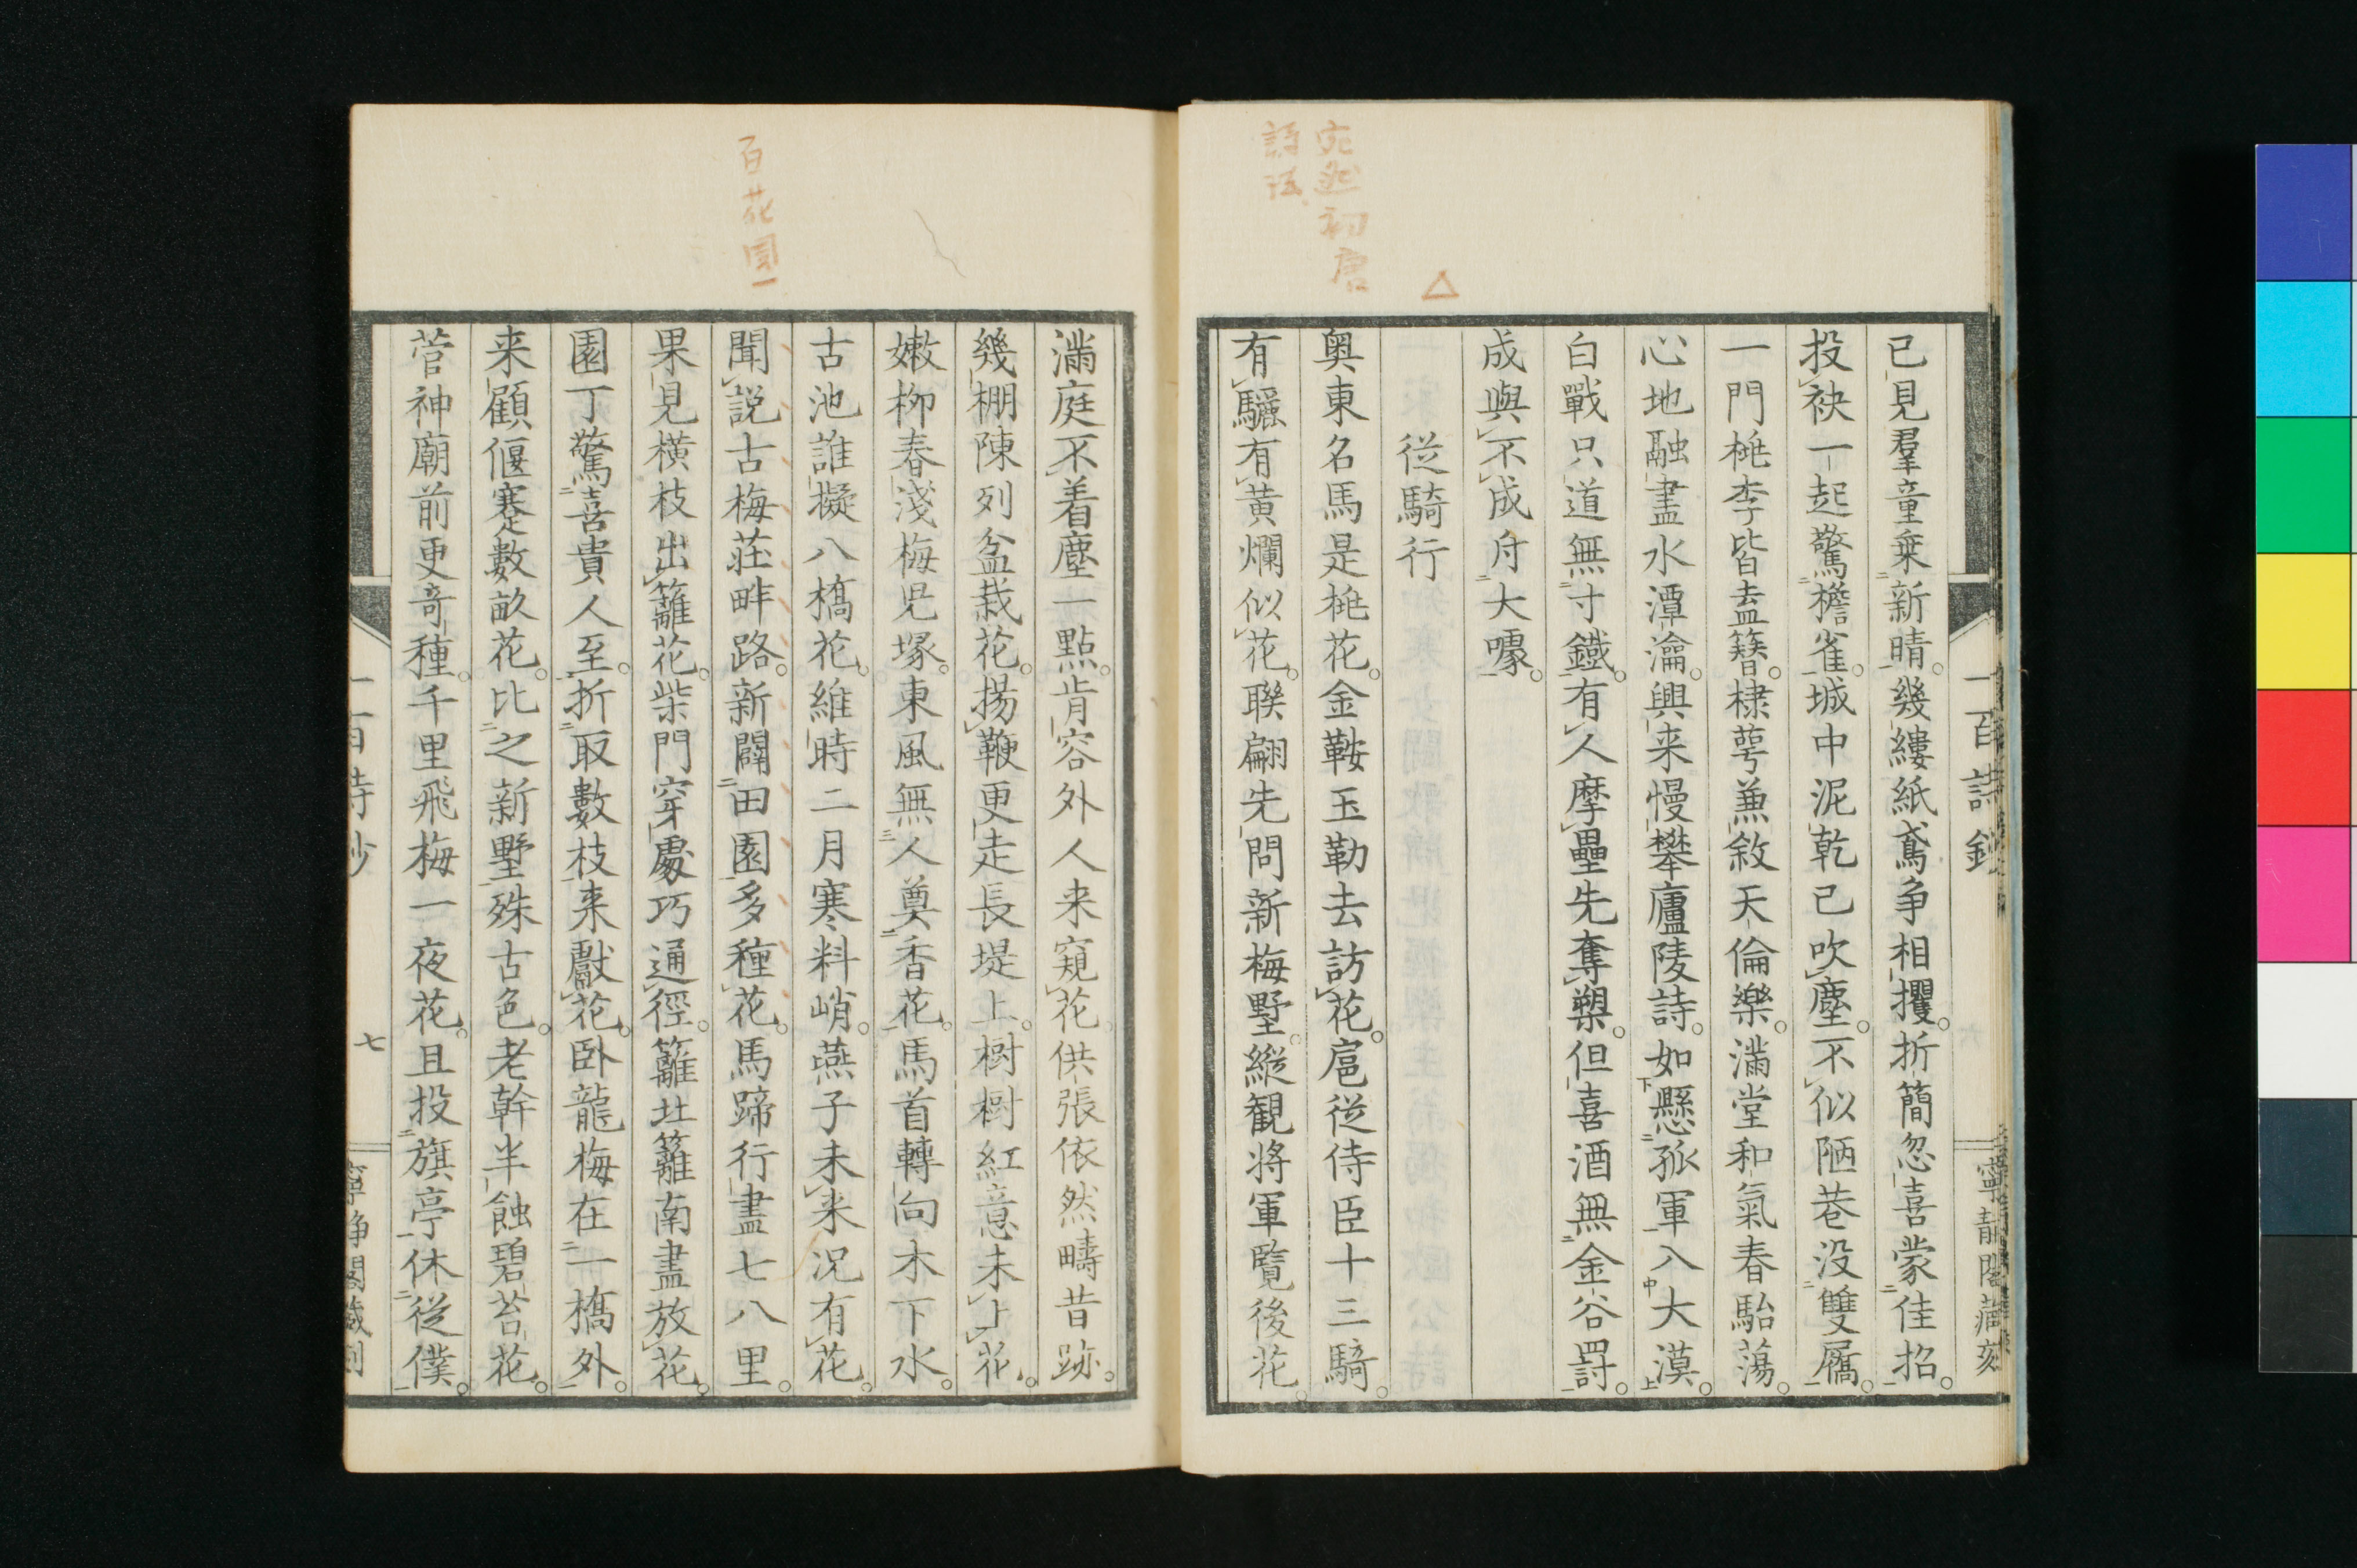 宛然初唐
詩法
一百詩鈔
寧靜閣藏刻
已見羣童乘新晴。幾縷紙鳶争相攫。折簡忽喜蒙佳招。
投袂一起驚檐雀。城中泥乾已吹塵。不似陋巷没雙屩。
一門桃李皆盍簪。棣萼兼敘天倫樂。滿堂和氣春駘蕩。
心地融盡水潭瀹。興来慢攀廬陵詩。如懸孤軍入大漠。
白戰只道無寸鐵。有人摩壘先奪槊。但喜酒無金谷罰。
成與不成付大噱。
從騎行
奥東名馬是桃花。金鞍玉勒去訪花。扈從侍臣十三騎。
有驪有黄爛似花。聯翩先問新梅墅。縱観将軍覽後花。
百花園一
滿庭不着塵一點。肯容外人来窺花。供張依然疇昔跡。
幾棚陳列盆栽花。揚鞭更走長堤上。樹樹紅意未上花。
嫩柳春淺梅児塚。東風無人奠香花。馬首轉向木下水。
古池誰擬八橋花。維時二月寒料峭。燕子未来况有花。
聞説古梅莊畔路。新闢田園多種花。馬蹄行盡七八里。
果見横枝出籬花。柴門穿處巧通徑。籬北籬南盡放花。
園丁驚喜貴人至。折取數枝来獻花。卧龍梅在一橋外。
来顧偃蹇數畝花。比之新墅殊古色。老幹半蝕碧苔花。
菅神廟前更奇種。千里飛梅一夜花。且投旗亭休從僕。
七